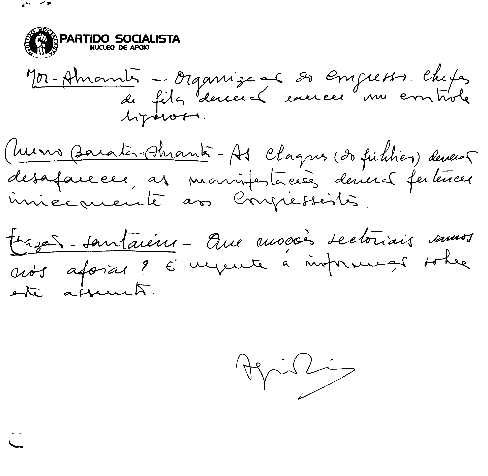 PARTIDO SOCIALISTA
NUCLEO DE APOIO
Abrantes - Organização do Congresso. Chefes
de fila deverão exercer um controle
rigoroso.
Nuno Barata - Abrantes - As claques (do folclore) deverão
desaparecer, as manifestações deverá pertencer
unicamente aos Congressistas.
- Santarém - Que moções sectoriais vamos
nós apoiar? É urgente a informação sobre
este assunto.